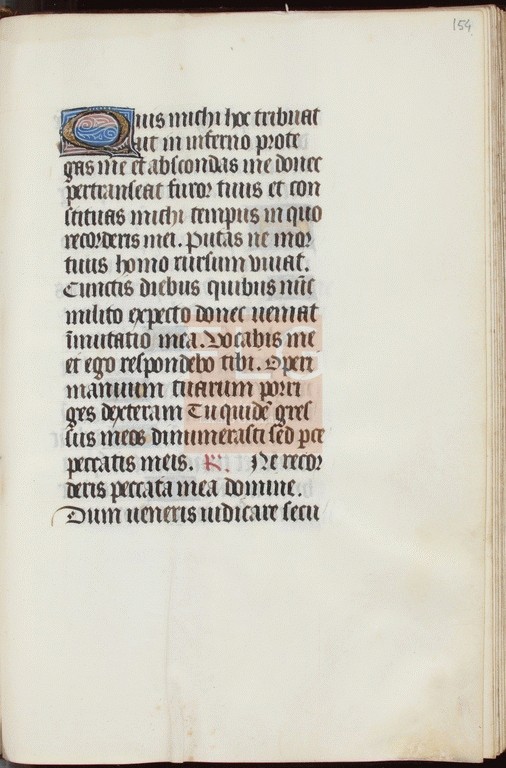 154
Quis michi hoc tribuat
ut in inferno prote
gas me et abscondas me donec
pertranseat furor tuus et con
stituas michi tempus in quo
recorderis mei. Putas ne mor
tuus homo rursum vivat.
Cunctis diebus quibus nūc
milito expecto donec veniat
īmutatio mea. Vocabis me
et ego respondebo tibi. Operi
manuum tuarum porri
ges dexteram Tu quidē gres
sus meos dinumerasti sed pce
peccatis meis. R. Ne recor
deris peccata mea domine.
Dum veneris iudicare secu
FLG